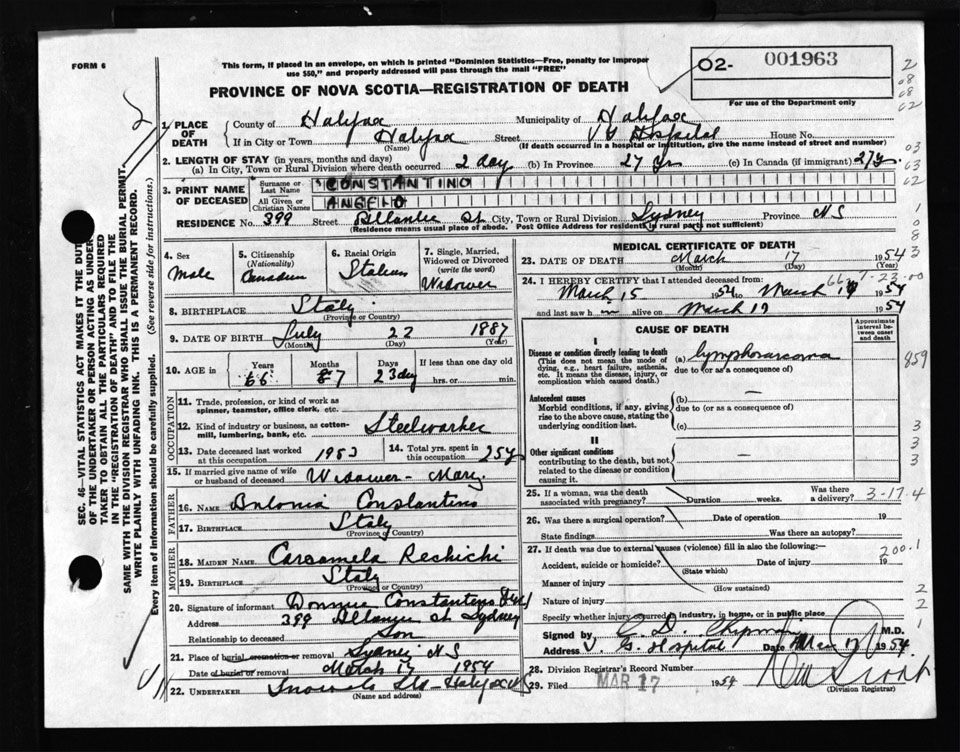 FORM 6
This form, if placed in an envelope, on which is printed "Dominion Statistics—Free, penalty for improper
use $50," and properly addressed will pass through the mail "FREE"
O2- 001963
For use of the Department only
PROVINCE OF NOVA SCOTIA—REGISTRATION OF DEATH
1. PLACE OF DEATH
County of Halifax Municipality of Halifax
If in City or Town Halifax Street V G Hospital House No.
(Name) (If death occurred in a hospital or institution, give the name instead of street and number)
2. LENGTH OF STAY (in years, months and days)
(a) In City, Town or Rural Division where death occurred 2 day (b) In Province 27 Yr (c) In Canada (if immigrant) 27 y.
3. PRINT NAME OF DECEASED
Surname or Last Name CONSTANTINO
All Given or Christian Names ANGELO
RESIDENCE No. 399 Street St City, Town or Rural Division Sydney Province NS
(Residence means usual place of abode. Post Office Address for residents in rural parts not sufficient)
4. Sex Male
5. Citizenship (Nationality) Canadian
6. Racial Origin Italian
7. Single, Married, Widowed or Divorced (write the word) Widower
8. BIRTHPLACE Italy
(Province or Country)
9. DATE OF BIRTH July 22 1887
(Month) (Day) (Year)
10. AGE in Years 66 Months 7 Days 23 day If less than one day old hrs. or min.
OCCUPATION
11. Trade, profession, or kind of work as spinner, teamster, office clerk, etc.
12. Kind of industry or business, as cotton-mill, lumbering, bank, etc. Steelworker
13. Date deceased last worked at this occupation 1953
14. Total yrs. spent in this occupation 25 y
15. If married give name of wife or husband of deceased Widower - Mary
FATHER
16. NAME Antonio Constantino
17. BIRTHPLACE Italy
(Province or Country)
MOTHER
18. MAIDEN NAME Caroamela Rechichi
19. BIRTHPLACE Italy
(Province or Country)
20. Signature of informant Constantino
Address 399 St Sydney
Relationship to deceased Son
21. Place of burial, cremation or removal Sydney NS
Date of burial or removal March 17 1954
22. UNDERTAKER Snow's Ltd - Halifax NS
(Name and address)
MEDICAL CERTIFICATE OF DEATH
23. DATE OF DEATH March 17 1954
(Month) (Day) (Year)
24. I HEREBY CERTIFY that I attended deceased from:
March 15 1954 to March 17 1954
and last saw h m alive on March 17 1954
CAUSE OF DEATH
Approximate interval between onset and death
I
Disease or condition directly leading to death (a) lymphosarcoma
(This does not mean the mode of dying, e.g., heart failure, asthenia, etc. It means the disease, injury, or complication which caused death.)
due to (or as a consequence of)
Antecedent causes (b) —
Morbid conditions, if any, giving rise to the above cause, stating the underlying condition last.
due to (or as a consequence of)
(c)
II
Other significant conditions —
contributing to the death, but not related to the disease or condition causing it.
25. If a woman, was the death associated with pregnancy? Duration weeks. Was there a delivery? 3-17.4
26. Was there a surgical operation? Date of operation 19
State findings Was there an autopsy?
27. If death was due to external causes (violence) fill in also the following:— 200.1
Accident, suicide or homicide? Date of injury 19
(State which)
Manner of injury
(How sustained)
Nature of injury
Specify whether injury occurred in industry, in home, or in public place
Signed by M.D.
Address V. G. Hospital Date Mar 17 1954
28. Division Registrar's Record Number
29. Filed MAR 17 1954
(Division Registrar)
SEC. 46—VITAL STATISTICS ACT MAKES IT THE DUTY
OF THE UNDERTAKER OR PERSON ACTING AS UNDER-
TAKER TO OBTAIN ALL THE PARTICULARS REQUIRED
IN THE "REGISTRATION OF DEATH" AND TO FILE THE
SAME WITH THE DIVISION REGISTRAR WHO SHALL ISSUE THE BURIAL PERMIT.
WRITE PLAINLY WITH UNFADING INK. THIS IS A PERMANENT RECORD.
Every item of information should be carefully supplied. (See reverse side for instructions.)
2
08
08
02
03
63
02
1
0
8
3
859
3
3
3
2
2
1